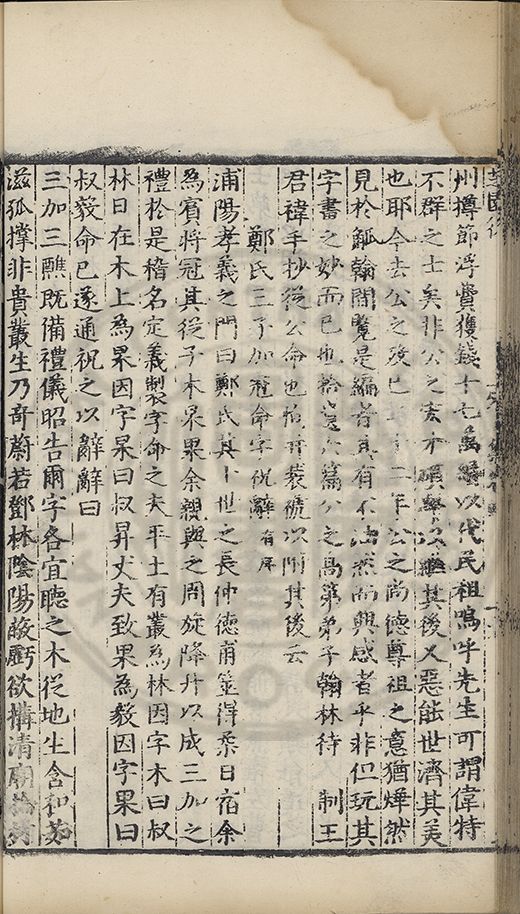 州撙節浮費獲錢十七萬緡以代民租嗚呼先生可謂偉特
不群之士矣非公之玄 以繼其後又惡能世濟其美
也耶今去公之歿已 十二年公之尚德尊祖之意猶燁然
見於觚翰間覽是編者其有不油然而興感者乎非但玩其
字書之妙而已也 公之高第弟子翰林待制王
君禕手抄從公命也 裝褫以附其後云
鄭氏三子加冠命字祝辭有序
浦陽孝義之門曰鄭氏其十世之長仲德甫筮得柔日宿余
為賓將冠其從子木杲果余親與之周旋降升以成三加之
禮於是稽名定義製字命之夫平土有叢為林因字木曰叔
林日在木上為杲因字杲曰叔昇丈夫致果為毅因字果曰
叔毅命已遂通祝之以辭辭曰
三加三醮既備禮儀昭告爾字各宜聽之木從地生含和
滋孤撑非貴叢生乃奇蔚若鄧林陰陽蔽虧欲搆清廟